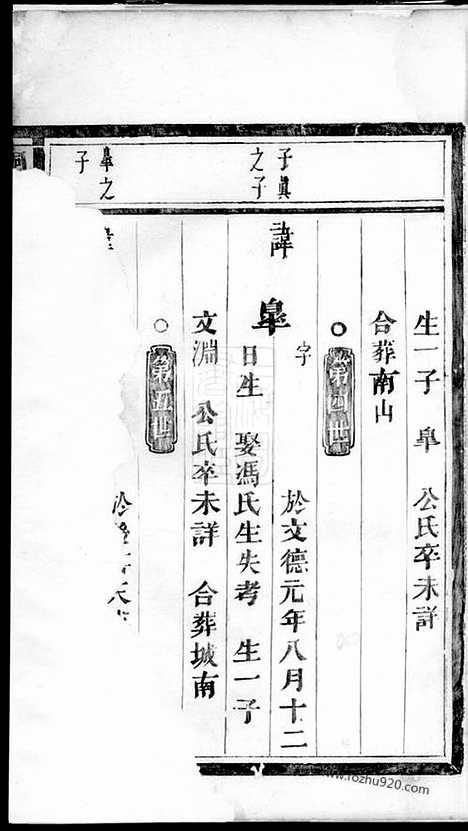 生一子　臯　公氏卒未詳
合葬南山
第四世
子眞
之子
諱臯　字　於文德元年八月十二
日生　娶馮氏生失考　生一子
文淵　公氏卒未詳　合葬城南
第五世
臯之
子
www.rozhu920.com